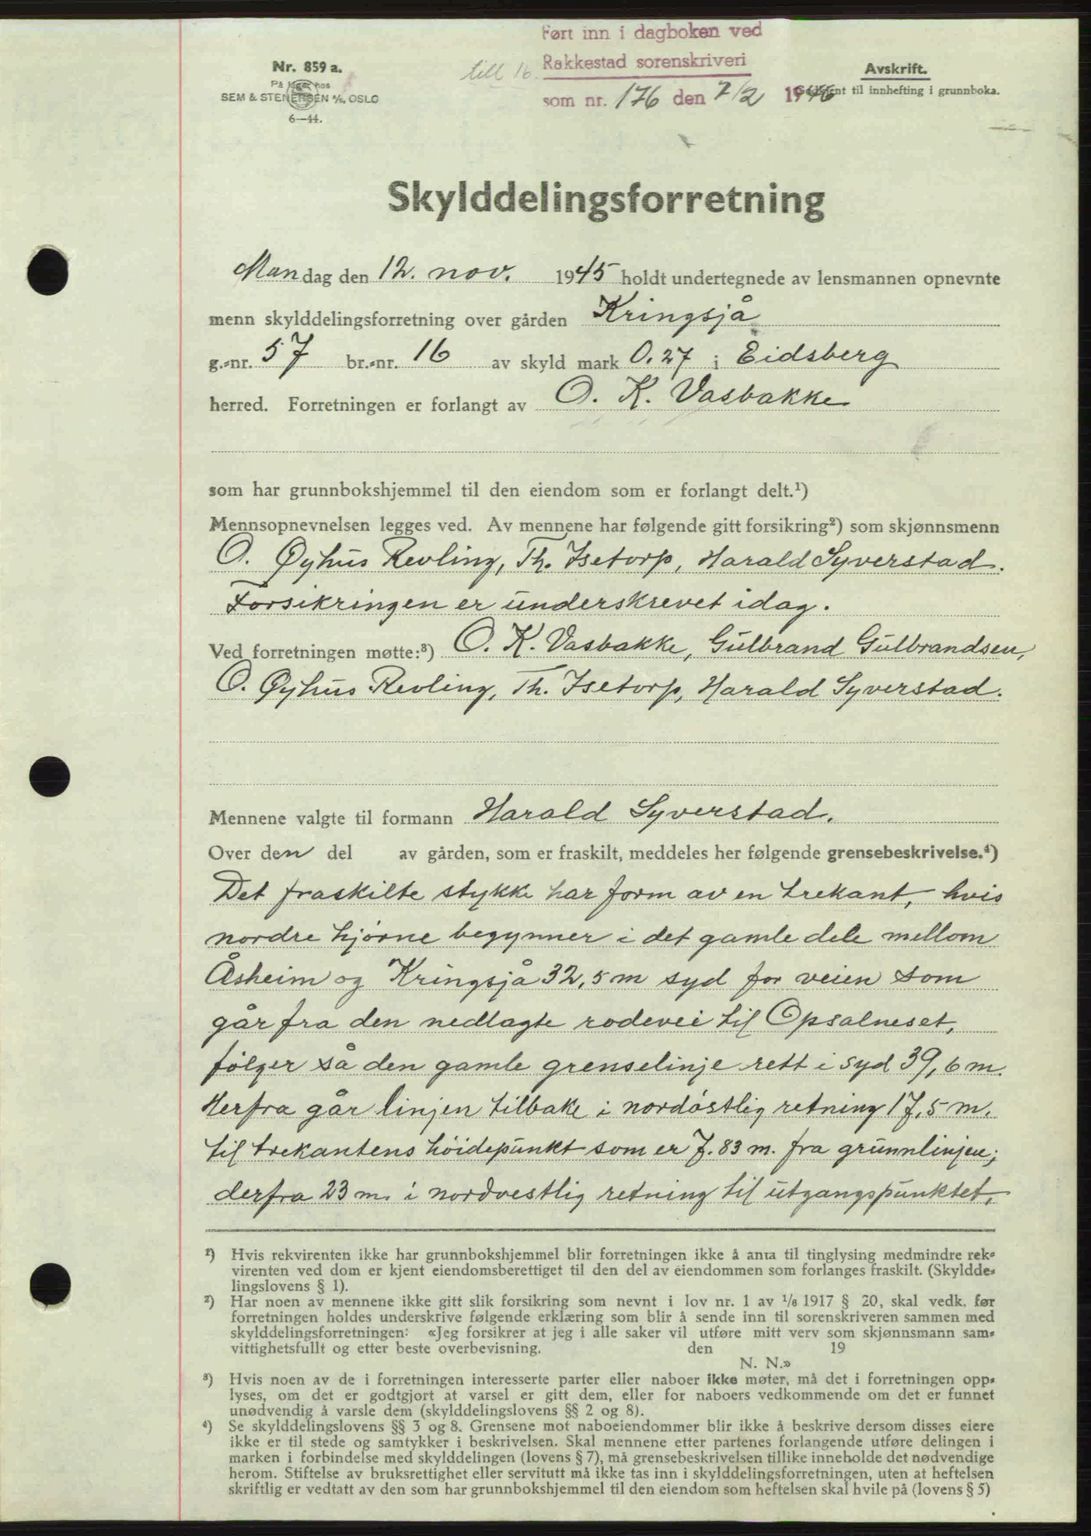 Ført inn i dagboken ved
Rakkestad sorenskriveri
som nr. 176 den 7/2 1946
till 16.
Nr. 859 a.
På lager hos
SEM & STENERSEN A/S, OSLO
6—44.
Avskrift.
Godkjent til innhefting i grunnboka.
Skylddelingsforretning
Mandag den 12. nov. 1945 holdt undertegnede av lensmannen opnevnte
menn skylddelingsforretning over gården Kringsjå
g.-nr. 57 br.-nr. 16 av skyld mark 0.27 i Eidsberg
herred. Forretningen er forlangt av O. K. Vasbakke
som har grunnbokshjemmel til den eiendom som er forlangt delt.¹)
Mennsopnevnelsen legges ved. Av mennene har følgende gitt forsikring²) som skjønnsmenn
O. Øyhus Revling, Th. Isetorp, Harald Syverstad.
Forsikringen er underskrevet idag.
Ved forretningen møtte:³) O. K. Vasbakke, Gulbrand Gulbrandsen,
O. Øyhus Revling, Th. Isetorp, Harald Syverstad.
Mennene valgte til formann Harald Syverstad.
Over den del av gården, som er fraskilt, meddeles her følgende grensebeskrivelse.⁴)
Det fraskilte stykke har form av en trekant, hvis
nordre hjørne begynner i det gamle dele mellom
Åsheim og Kringsjå 32,5 m syd for veien som
går fra den nedlagte rodevei til Opsalneset,
følger så den gamle grenselinje rett i syd 39,6 m.
Herfra går linjen tilbake i nordøstlig retning 17,5 m.
til trekantens høidepunkt som er 7.83 m. fra grunnlinjen;
derfra 23 m. i nordvestlig retning til utgangspunktet.
¹) Hvis rekvirenten ikke har grunnbokshjemmel blir forretningen ikke å anta til tinglysing medmindre rek-
virenten ved dom er kjent eiendomsberettiget til den del av eiendommen som forlanges fraskilt. (Skyldde-
lingslovens § 1).
²) Har noen av mennene ikke gitt slik forsikring som nevnt i lov nr. 1 av 1/8 1917 § 20, skal vedk. før
forretningen holdes underskrive følgende erklæring som blir å sende inn til sorenskriveren sammen med
skylddelingsforretningen: «Jeg forsikrer at jeg i alle saker vil utføre mitt verv som skjønnsmann sam-
vittighetsfullt og etter beste overbevisning. den 19
N. N.»
³) Hvis noen av de i forretningen interesserte parter eller naboer ikke møter, må det i forretningen opp-
lyses, om det er godtgjort at varsel er gitt dem, eller for naboers vedkommende om det er funnet
unødvendig å varsle dem (skylddelingslovens §§ 2 og 8).
⁴) Se skylddelingslovens §§ 3 og 8. Grensene mot naboeiendommer blir ikke å beskrive dersom disses eiere
ikke er til stede og samtykker i beskrivelsen. Skal mennene etter partenes forlangende utføre delingen i
marken i forbindelse med skylddelingen (lovens § 7), må grensebeskrivelsen tillike inneholde det nødvendige
herom. Stiftelse av bruksrettighet eller servitutt må ikke tas inn i skylddelingsforretningen, uten at heftelsen
skriftlig er vedtatt av den som har grunnbokshjemmel til den eiendom som heftelsen skal hvile på (lovens § 5)